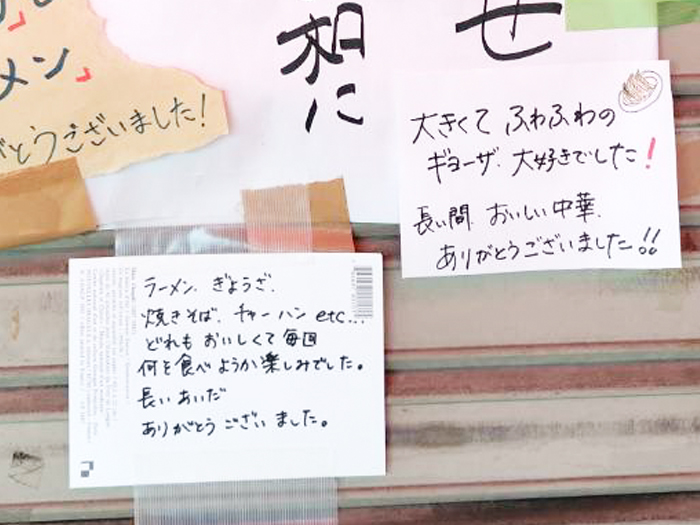 メン」
とうございました!
相に
せ
大きくて ふわふわの
ギョーザ、大好きでした!
長い間、おいしい中華、
ありがとうございました!!
ラーメン、ぎょうざ、
焼きそば、チャーハン etc...
どれも おいしくて 毎回
何を食べようか楽しみでした。
長いあいだ
ありがとう ございました。